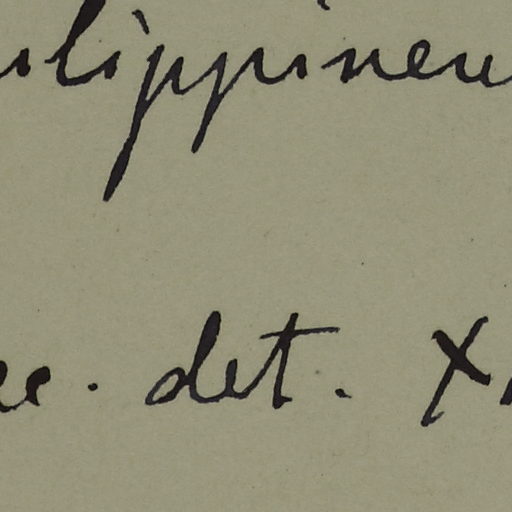 ilippinen
det. X